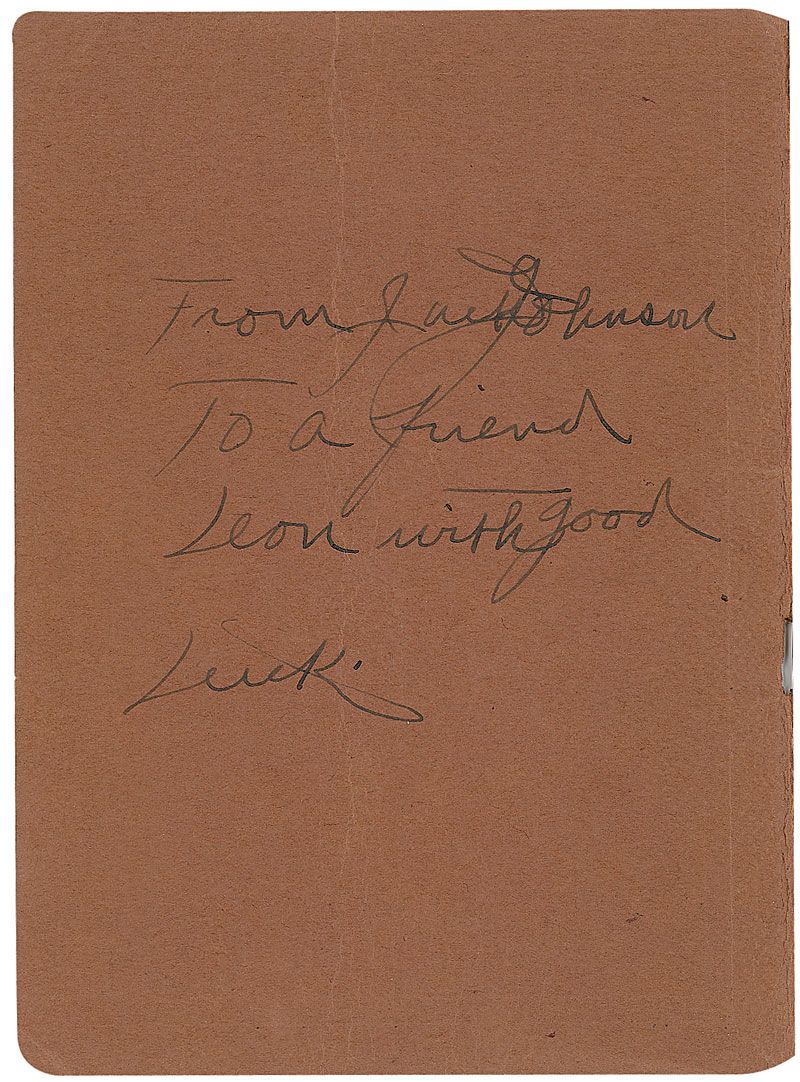 From Jack Johnson
To a friend
Leon with good
Luck.